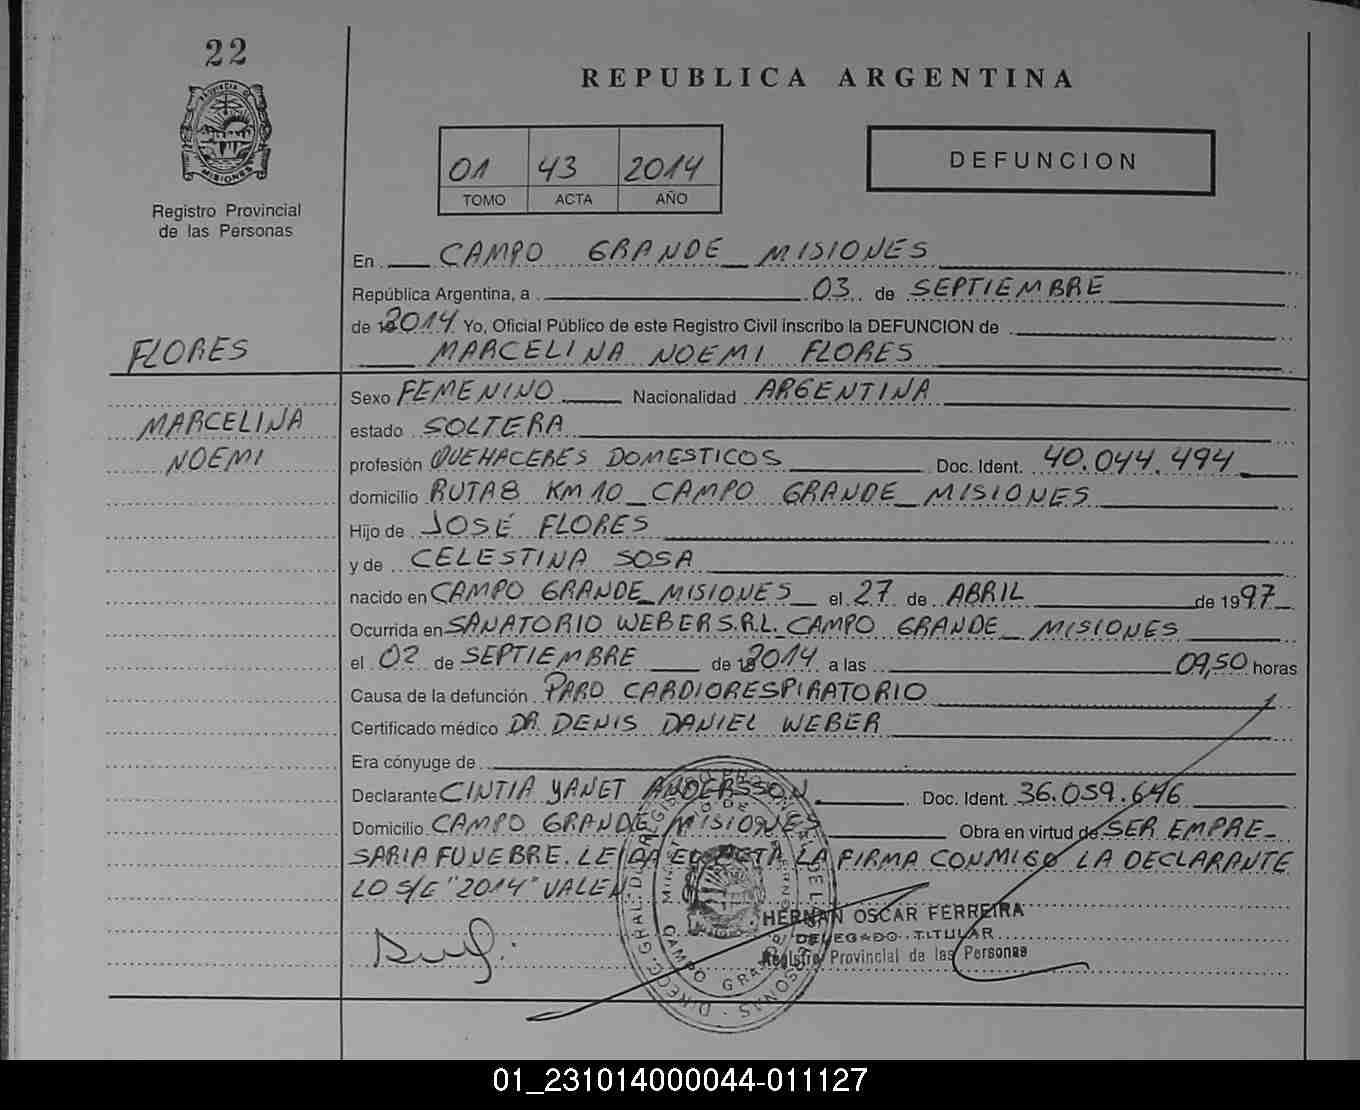 22
REPUBLICA ARGENTINA
PROVINCIA DE MISIONES
Registro Provincial
de las Personas
01 43 2014
TOMO ACTA AÑO
DEFUNCION
En CAMPO GRANDE _ MISIONES
República Argentina, a 03 de SEPTIEMBRE
de 2014 Yo, Oficial Público de este Registro Civil inscribo la DEFUNCION de
FLORES MARCELINA NOEMI FLORES
Sexo FEMENINO Nacionalidad ARGENTINA
MARCELINA estado SOLTERA
NOEMI profesión QUEHACERES DOMESTICOS Doc. Ident. 40.044.494
domicilio RUTA 8 KM 10 _ CAMPO GRANDE _ MISIONES
Hijo de JOSÉ FLORES
y de CELESTINA SOSA
nacido en CAMPO GRANDE _ MISIONES el 27 de ABRIL de 1997
Ocurrida en SANATORIO WEBER S.R.L. _ CAMPO GRANDE _ MISIONES
el 02 de SEPTIEMBRE de 2014 a las 09,50 horas
Causa de la defunción PARO CARDIORESPIRATORIO
Certificado médico DR. DENIS DANIEL WEBER
Era cónyuge de
Declarante CINTIA YANET ANDERSSON Doc. Ident. 36.059.646
Domicilio CAMPO GRANDE _ MISIONES Obra en virtud de SER EMPRE-
SARIA FUNEBRE. LEIDA EL ACTA LA FIRMA CONMIGO LA DECLARANTE
LO S/E "2014" VALEN
HERNAN OSCAR FERREIRA
DELEGADO TITULAR
Registro Provincial de las Personas
CAMPO GRANDE
01_231014000044-011127